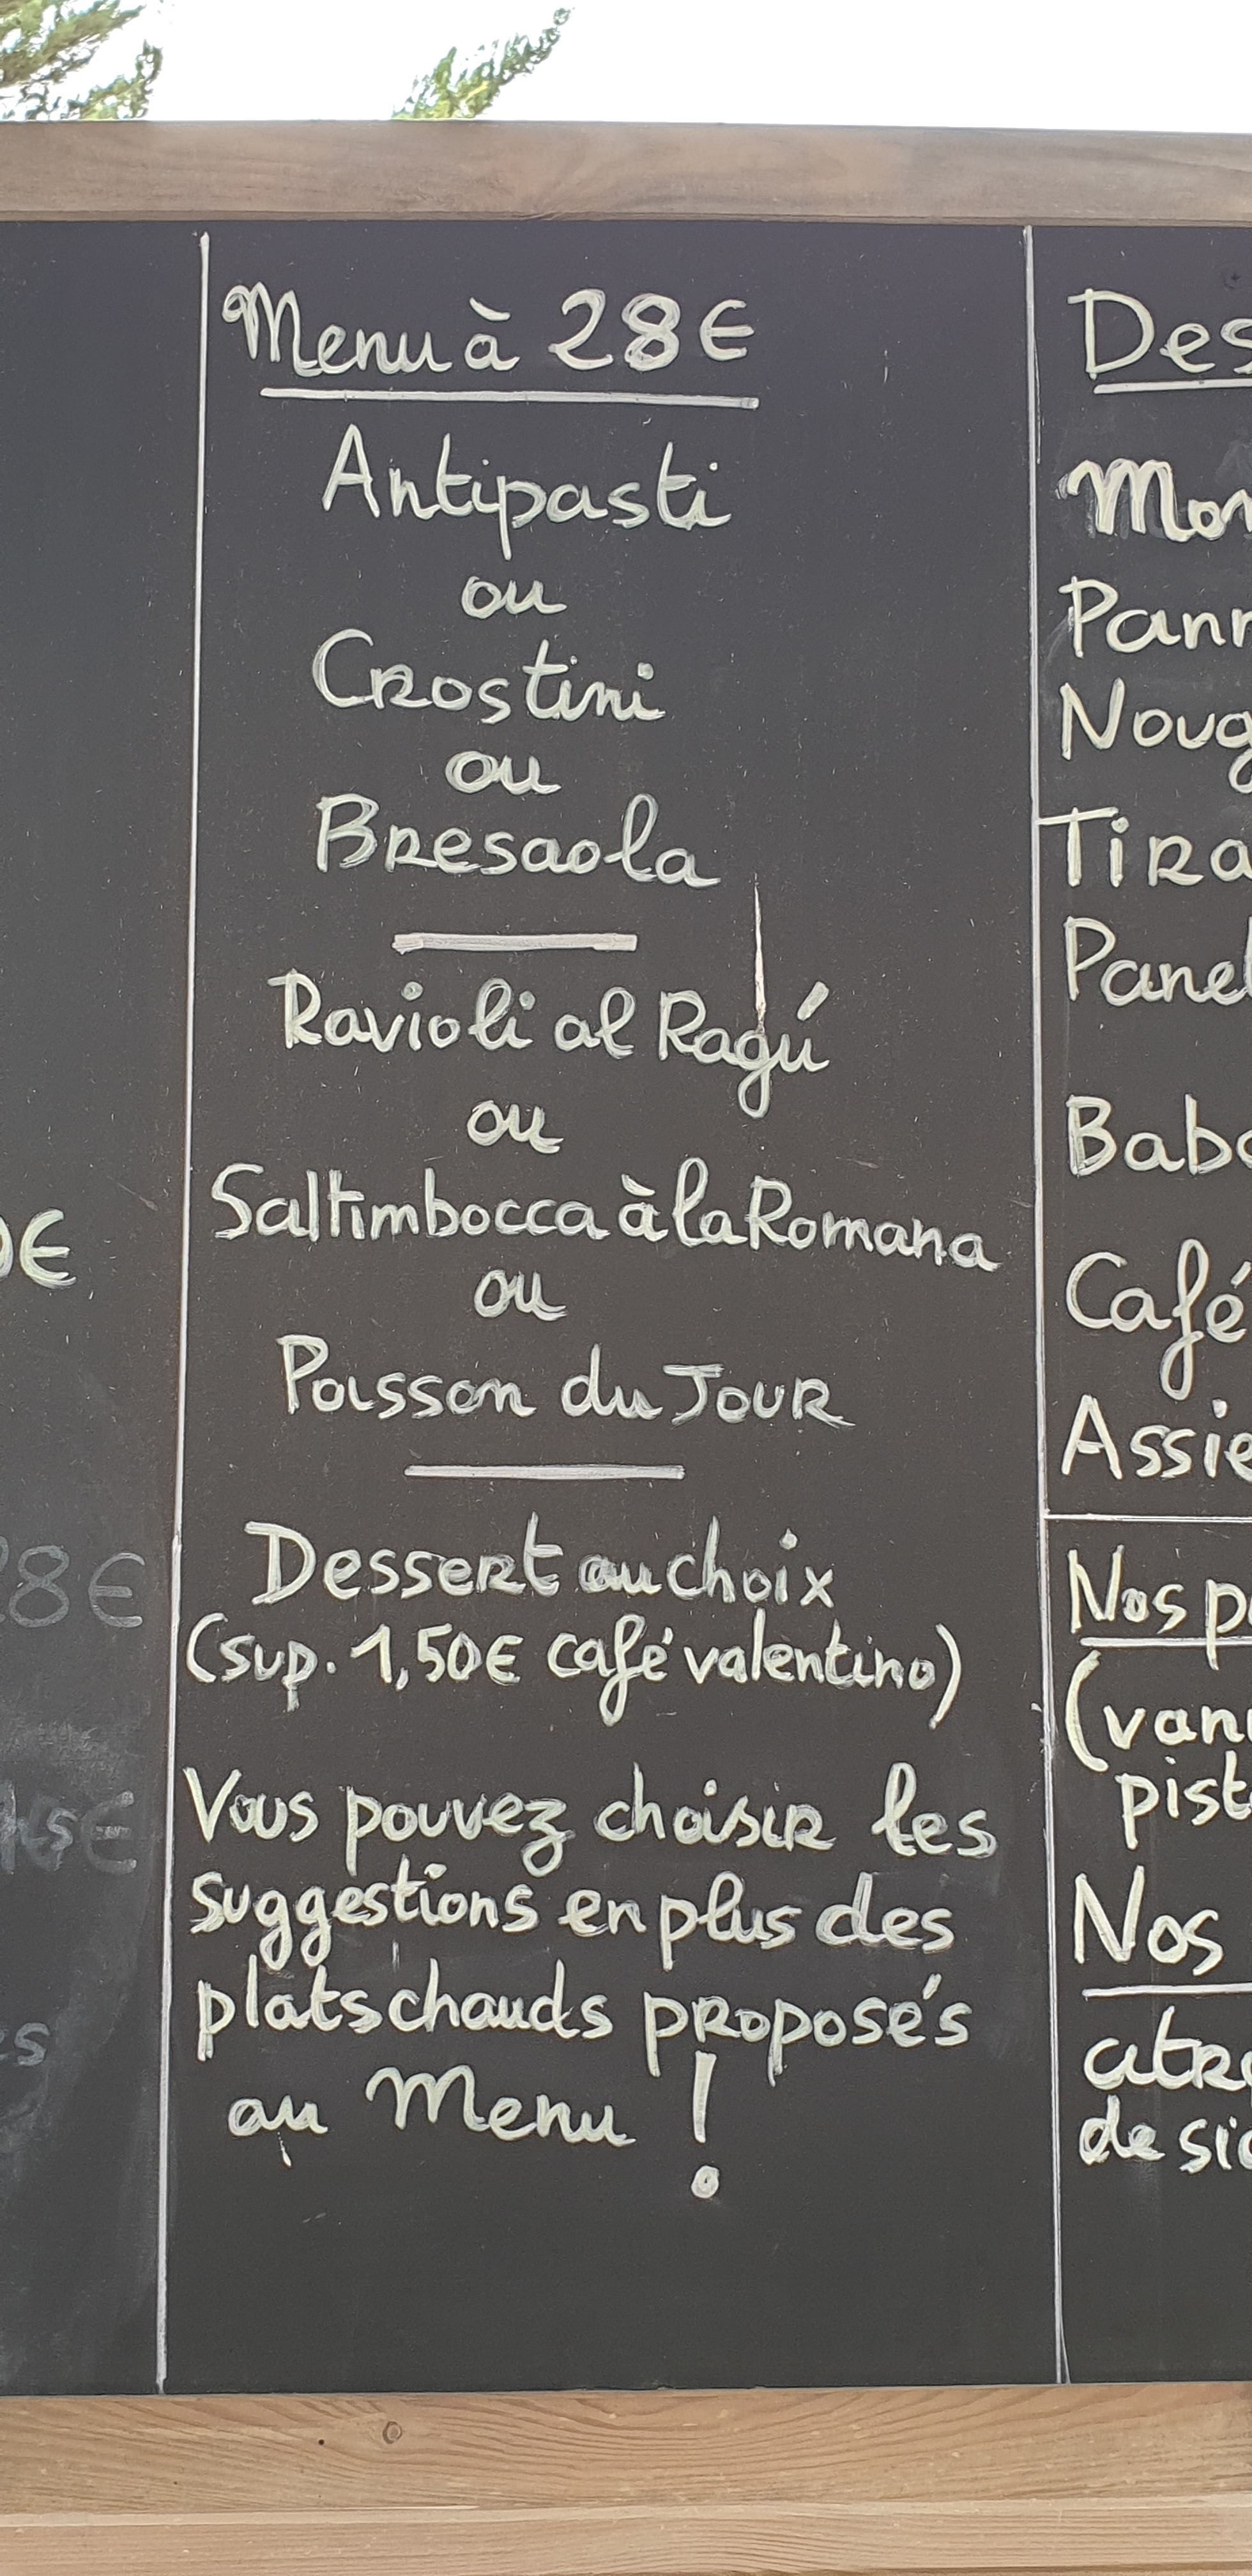 Menu à 28€
Antipasti
ou
Crostini
ou
Bresaola
Ravioli al Ragú
ou
Saltimbocca à la Romana
ou
Poisson du Jour
Dessert au choix
(sup. 1,50€ café valentino)
Vous pouvez choisir les
suggestions en plus des
plats chauds proposés
au Menu !
0€
28€
es
Des
Mor
Pann
Noug
Tira
Panel
Bab
Café
Assie
Nos p
(van
pist
Nos
citr
de si